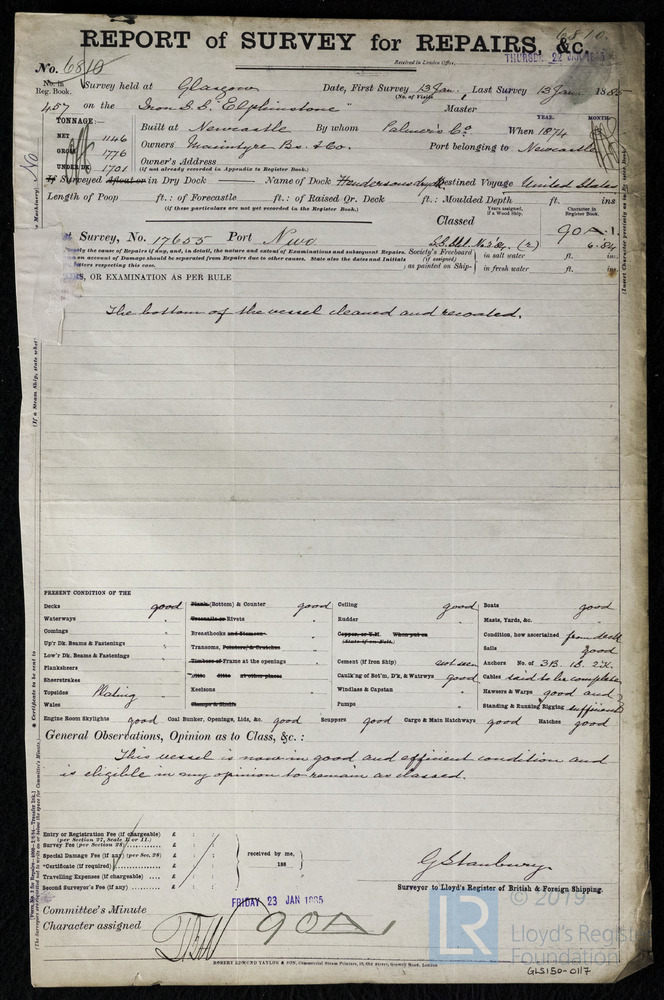 6810.
REPORT of SURVEY for REPAIRS, &c.
No. 6810
Received in London Office,
THURSDAY 22 JAN 1885
No. in Reg. Book.
Survey held at Glasgow Date, First Survey 13 Jan. Last Survey 13 Jan. 1885
(No. of Visits
457 on the Iron S.S. "Elphinstone" Master
TONNAGE:—
YEAR. MONTH.
NET 1146
Built at Newcastle By whom Palmer's Co. When 1874
GROSS 1776
Owners Macintyre Bs. & Co. Port belonging to Newcastle
UNDER DK. 1701
Owner's Address
(if not already recorded in Appendix to Register Book.)
If Surveyed Afloat or in Dry Dock — Name of Dock Hendersons Destined Voyage United States
Length of Poop ft.: of Forecastle ft.: of Raised Qr. Deck ft.: Moulded Depth ft. ins
(If these particulars are not yet recorded in the Register Book.)
Years assigned, if a Wood Ship.
Character in Register Book.
Classed 90A.1.
Survey, No. 17655 Port Nwc
6.84
Society's Freeboard (if assigned) as painted on Ship—
in salt water ft. ins.
in fresh water ft. in.
the cause of Repairs if any, and, in detail, the nature and extent of Examinations and subsequent Repairs.
on account of Damage should be separated from Repairs due to other causes. State also the dates and Initials
letters respecting this case.
OR EXAMINATION AS PER RULE
The bottom of the vessel cleaned and recoated.
PRESENT CONDITION OF THE
Decks good
Waterways "
Comings "
Up'r Dk. Beams & Fastenings "
Low'r Dk. Beams & Fastenings "
Planksheers
Sheerstrakes "
Topsides Plating "
Wales
Plank (Bottom) & Counter good
Treenails or Rivets "
Breasthooks and Stemson "
Transoms, Pointers, & Crutches "
Timbers of Frame at the openings "
Ditto ditto at other places
Keelsons "
Clamps & Shelfs
Ceiling good
Rudder "
Copper, or Y.M. When put on
(State if on Felt.)
Cement (if Iron Ship) not seen
Caulk'ng of Bot'm, D'k, & Watrwys good
Windlass & Capstan "
Pumps "
Boats good
Masts, Yards, &c. "
Condition, how ascertained from deck
Sails good
Anchors No. of 3B. 1S. 2K.
Cables said to be complete
Hawsers & Warps good and
Standing & Running Rigging sufficient
Engine Room Skylights good Coal Bunker, Openings, Lids, &c. good Scuppers good Cargo & Main Hatchways good Hatches good
General Observations, Opinion as to Class, &c. :
This vessel is now in good and efficient condition and
is eligible in my opinion to remain as classed.
Entry or Registration Fee (if chargeable) £ : :
(per Section 27, Scale I. or II.)
Survey Fee (per Section 28) £ : :
Special Damage Fee (if any) (per Sec. 28) £ : :
*Certificate (if required) £ : :
Travelling Expenses (if chargeable) £ : :
Second Surveyor's Fee (if any) £ : :
received by me,
188
G Stanbury
Surveyor to Lloyd's Register of British & Foreign Shipping.
FRIDAY 23 JAN 1885
Committee's Minute
Character assigned 90A1
ROBERT EDMUND TAYLOR & SON, Commercial Steam Printers, 19, Old Street, Goswell Road, London
LR
© 2019
Lloyd's Regist
Foundation
GLS150-0117